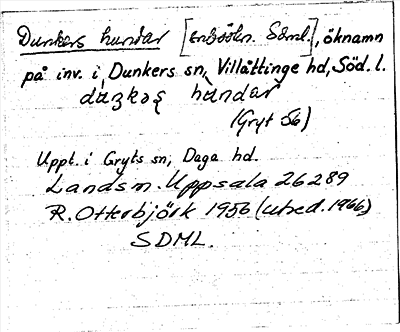 Dunkers hundar [Enbjöln. Söml.], öknamn
på inv. i Dunkers sn, Villåttinge hd, Söd. l.
hundar
(Gryt Sb)
Uppt. i Gryts sn, Daga hd.
Landsm. Uppsala 26289
R. Otterbjörk 1956 (utred. 1966)
SDML.